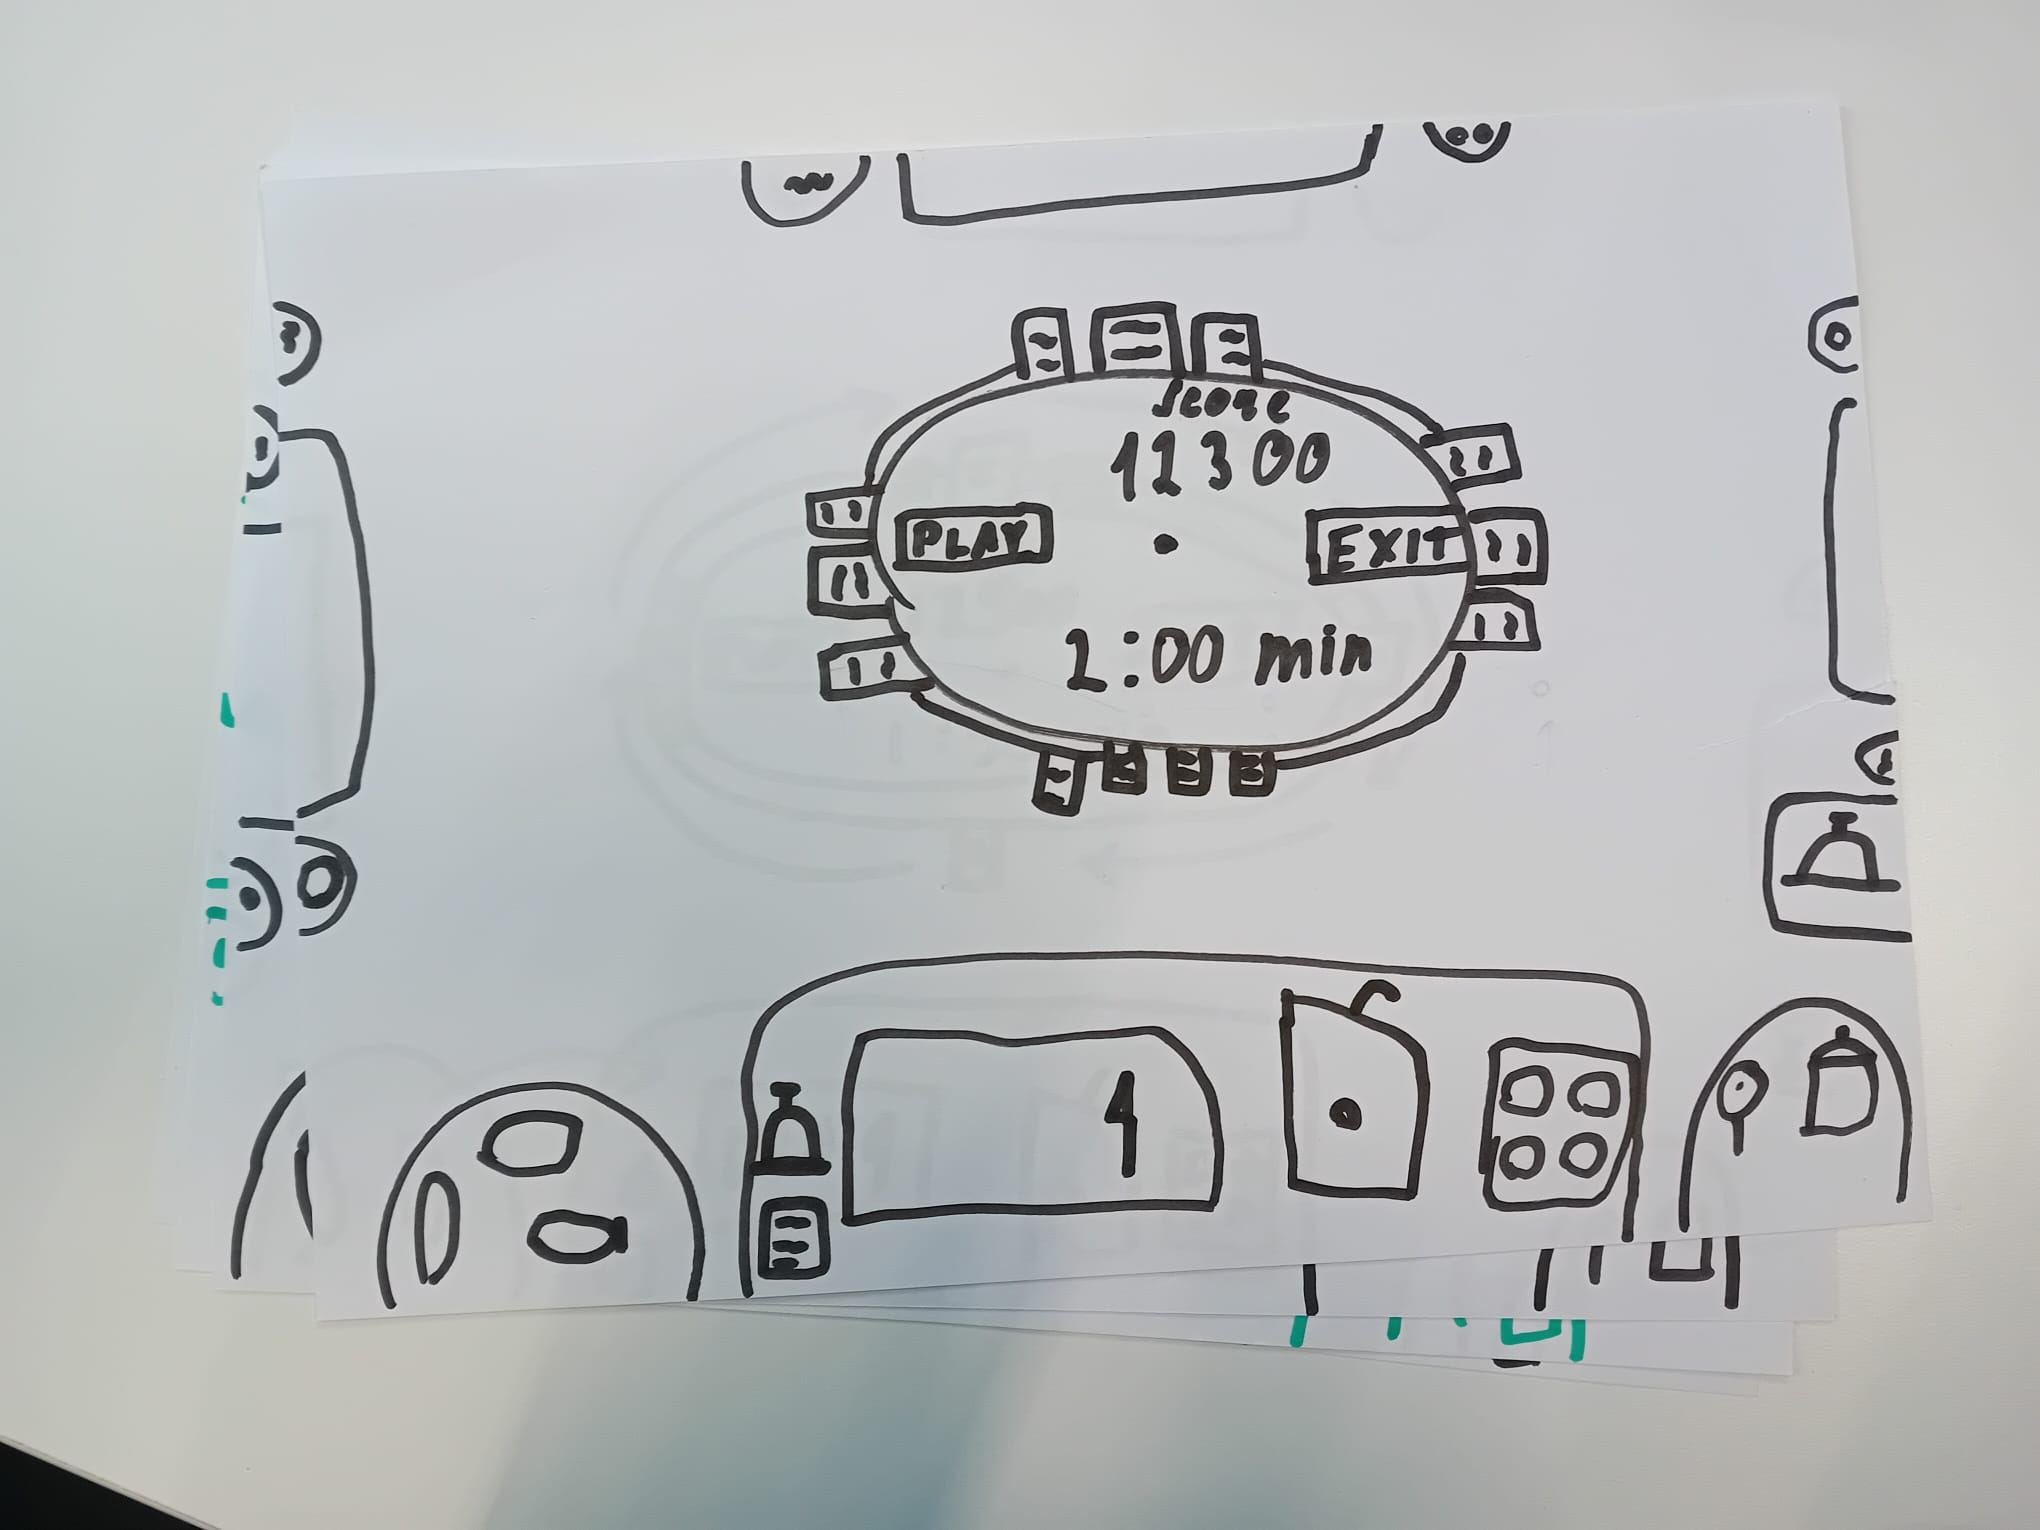 Score
12300
PLAY
EXIT
2:00 min
1